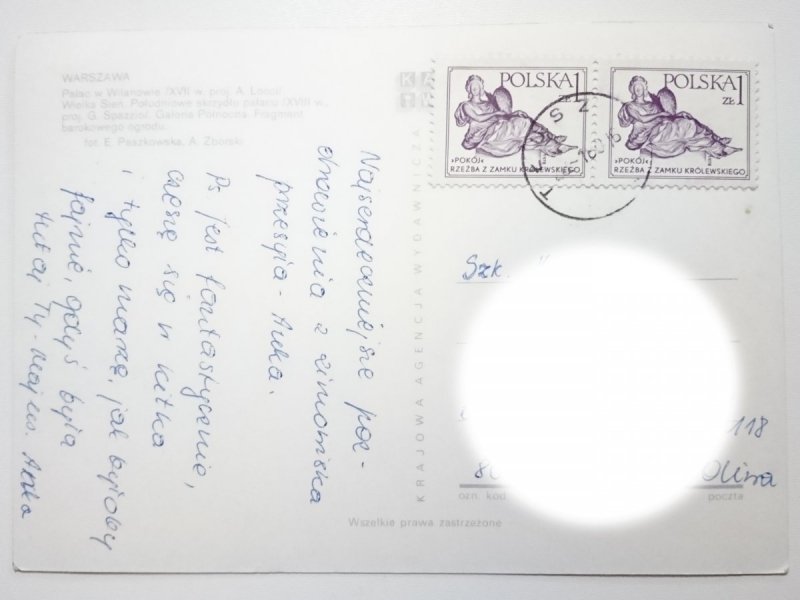 WARSZAWA
Pałac w Wilanowie /XVII w. proj. A. Locci/.
Wielka Sień. Południowe skrzydło pałacu /XVIII w.,
proj. G. Spazzio/. Galeria Północna. Fragment
barokowego ogrodu.
fot. E. Peszkowska, A. Zborski
KRAJOWA AGENCJA WYDAWNICZA
POLSKA 1
ZŁ
»POKÓJ«
RZEŹBA Z ZAMKU KRÓLEWSKIEGO
POLSKA 1
ZŁ
»POKÓJ«
RZEŹBA Z ZAMKU KRÓLEWSKIEGO
Najserdeczniejsze poz-
drowienia z zimowiska
przesyła - Anka.
Ps jest fantastycznie,
cieszę się
i tylko marzę, jak byłoby
fajnie, gdyś była
tutaj Ty - Anka
Szk.
118
80
Oliwa
ozn. kod
poczta
Wszelkie prawa zastrzeżone